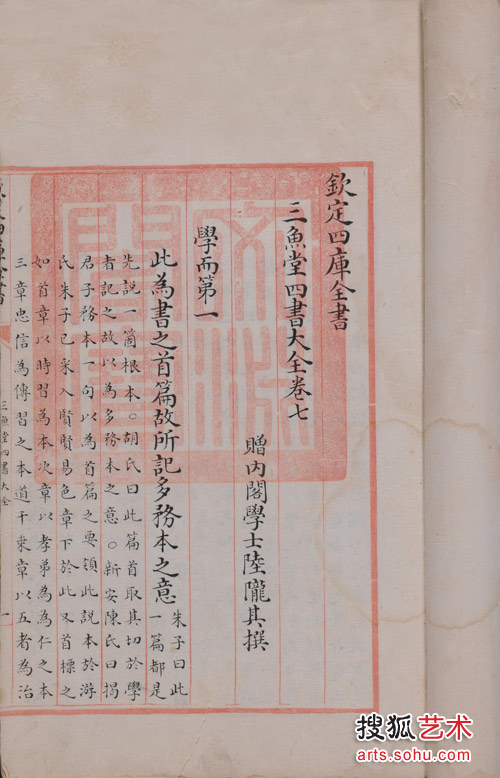 欽定四庫全書
三魚堂四書大全卷七
贈內閣學士陸隴其撰
學而第一
此為書之首篇故所記多務本之意
朱子曰此
一篇都是
先說一箇根本○胡氏曰此篇首取其切於學
者記之故以為多務本之意○新安陳氏曰揭
君子務本一句以為首篇之要領此說本於游
氏朱子已采入賢賢易色章下於此又首標之
如首章以時習為本次章以孝弟為為仁之本
三章忠信為傳習之本道千乗章以五者為治
四庫全書
三魚堂四書大全
一
文淵閣寶
搜狐艺术
arts.sohu.com